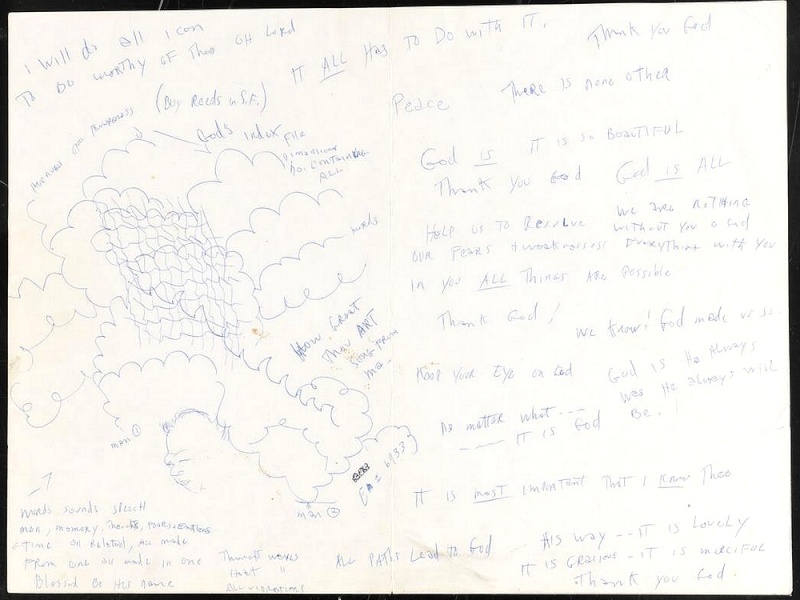 I will do all I can
To Be worthy of Thee OH Lord
IT ALL Has To Do with IT.
Thank You God
(Buy Reeds in S.F.)
Peace
There Is none other
Heavens of
God's index file
dimension
No. containing
ALL
God is IT is so BEAUTIFUL
Thank You God God is ALL
words
Help us To Resolve We are NOTHING
our Fears & weaknesses without You God
Everything with You
IN You ALL Things Are Possible
How Great
Thou ART
Song From
me -
Thank God! We Know! God made us so.
Keep Your Eye on God
God is He Always
was He always will
Be.
No matter what ----
---- IT is God
man ①
man ②
Em = 6933
IT Is most Important That I Know Thee
words sounds speech
man, memory, Thoughts, Fears & Emotions
Time all Related, All made
From one all made in one
Blessed Be His name
Thought waves
Heat "
ALL vibrations
ALL PATHS Lead to God
His way -- IT Is LOVELY
IT Is Gracious - IT is merciful
Thank You God.